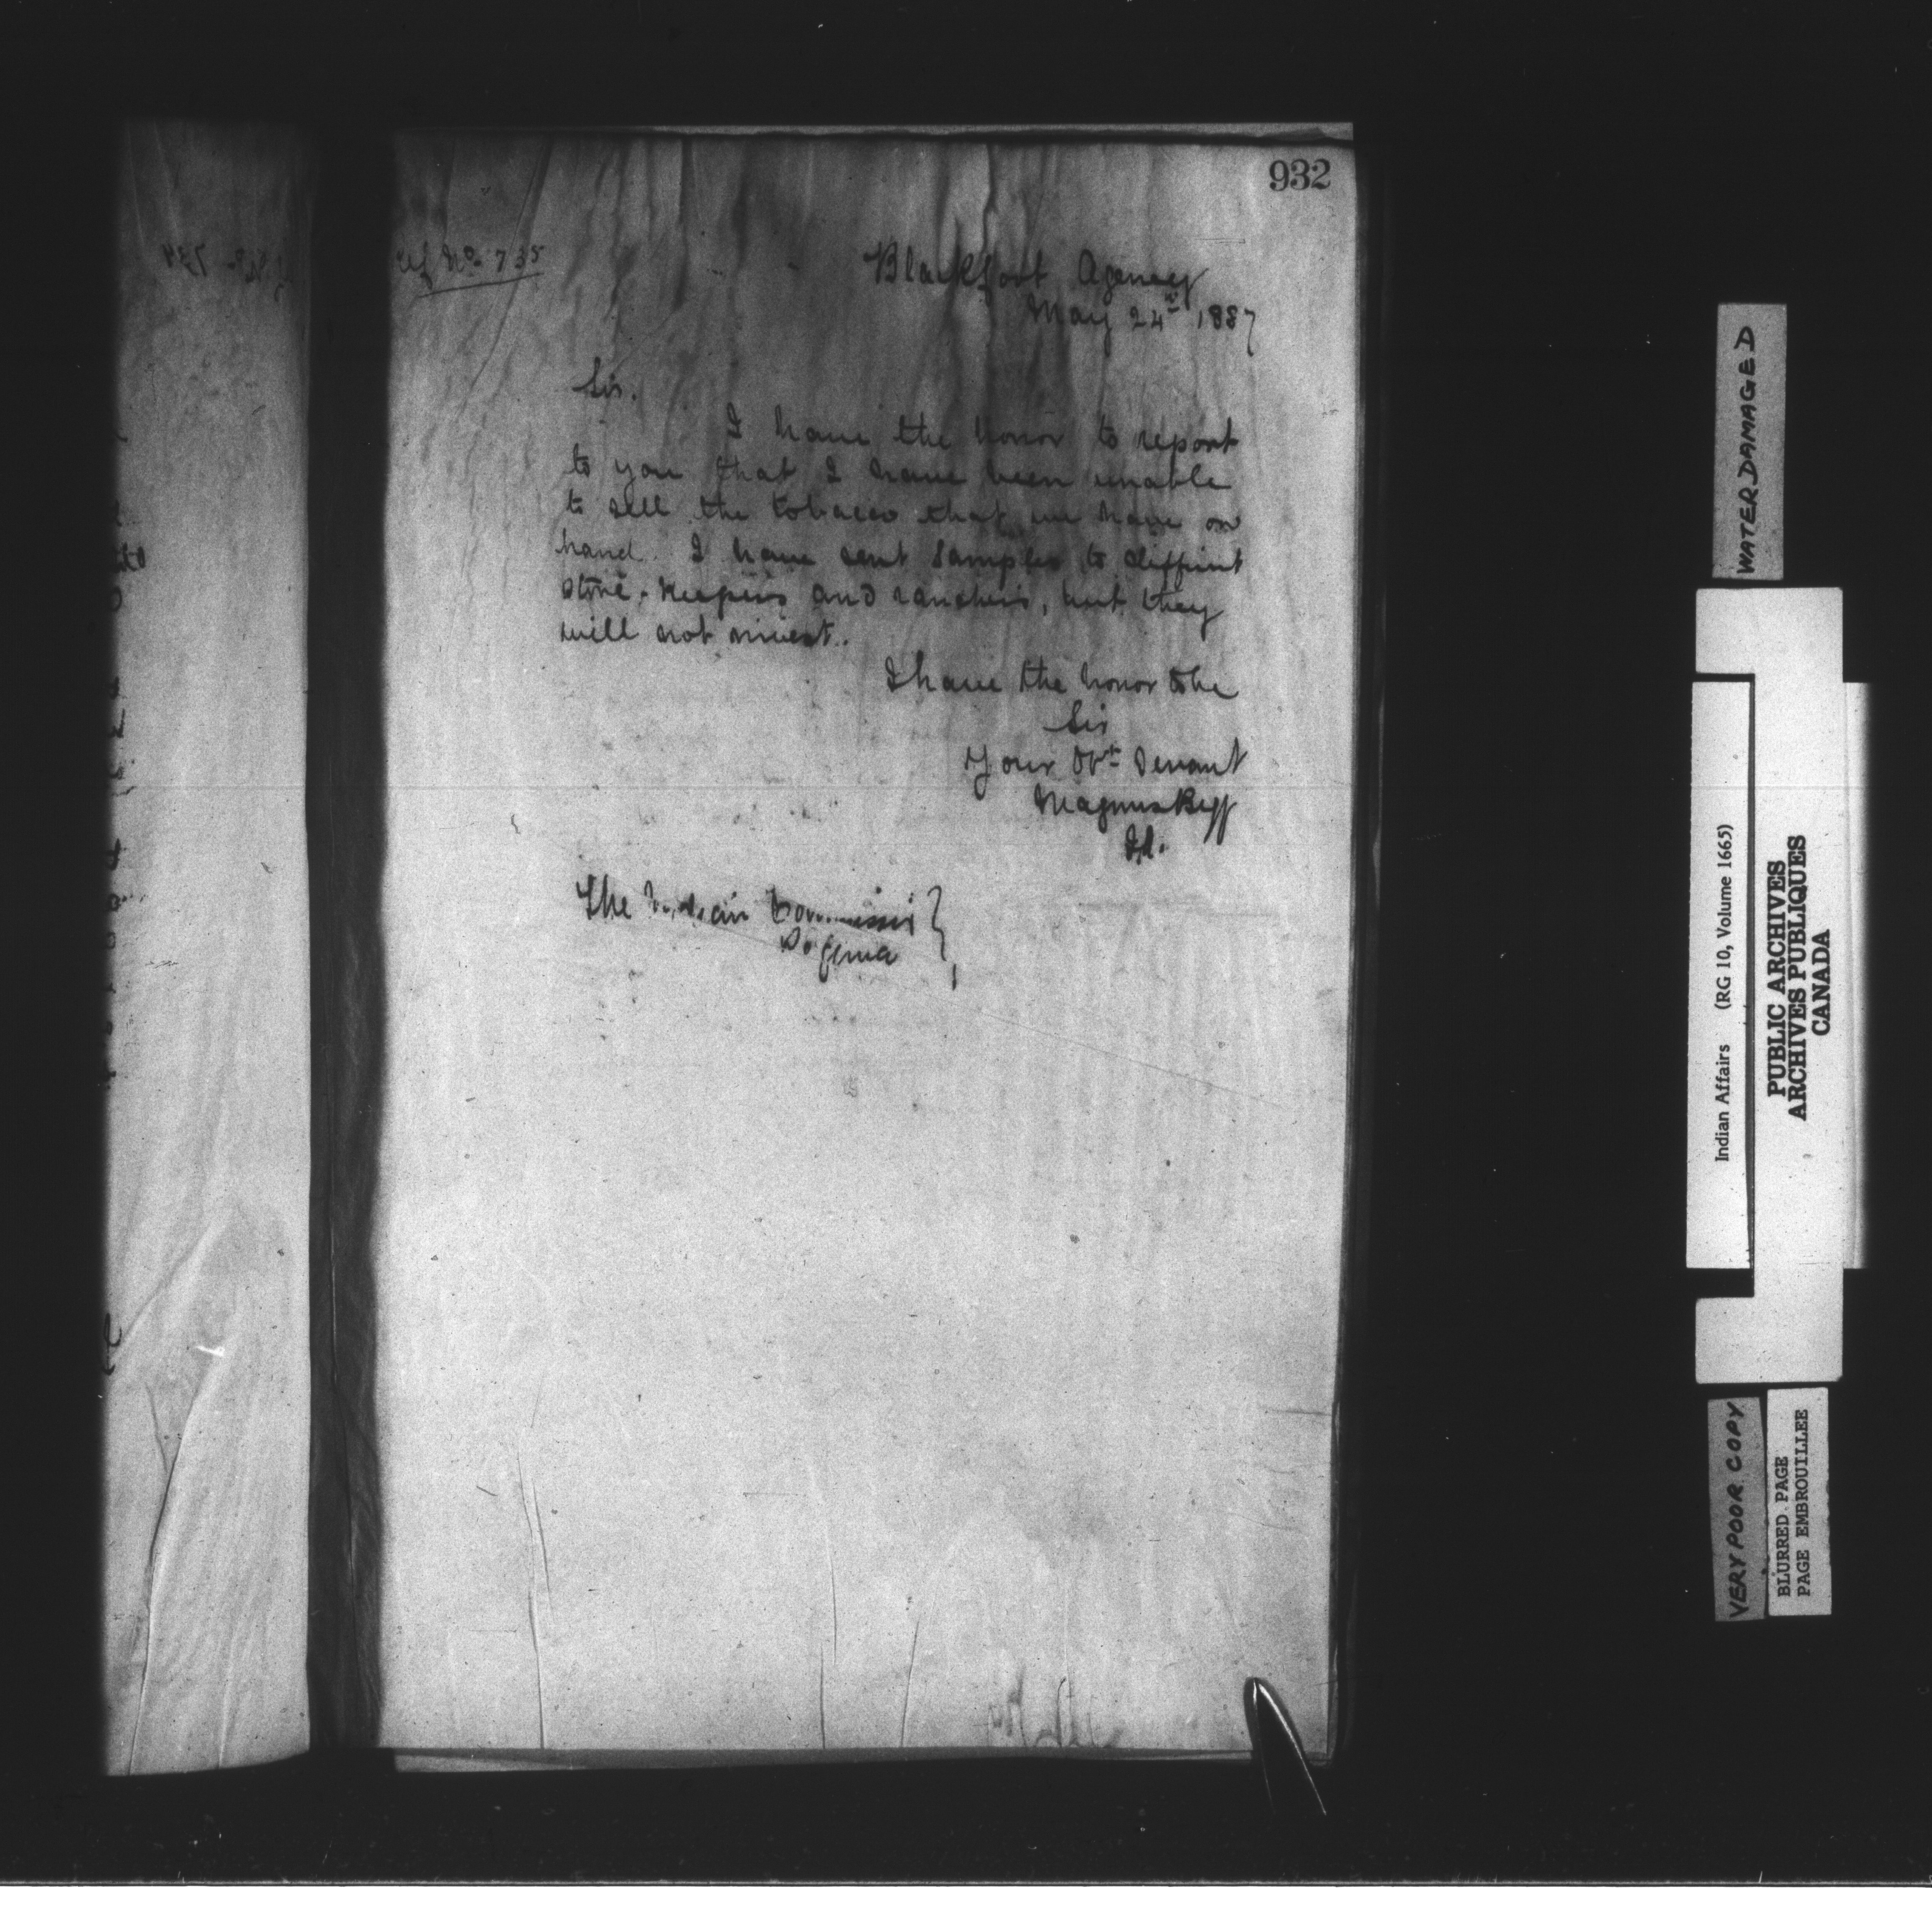 932
Ref No. 735
Blackfoot Agency
May 24th 1887
Sir.
I have the honor to report
to you that I have been unable
to sell the tobacco that we have on
hand. I have sent samples to different
store-keepers and ranchers, but they
will not invest.
I have the honor to be
Sir
Your Obt Servant
Magnus Begg
I.A.
The Indian Commissr
Regina
WATER DAMAGED
Indian Affairs (RG 10, Volume 1665)
PUBLIC ARCHIVES
ARCHIVES PUBLIQUES
CANADA
VERY POOR COPY
BLURRED PAGE
PAGE EMBROUILLEE